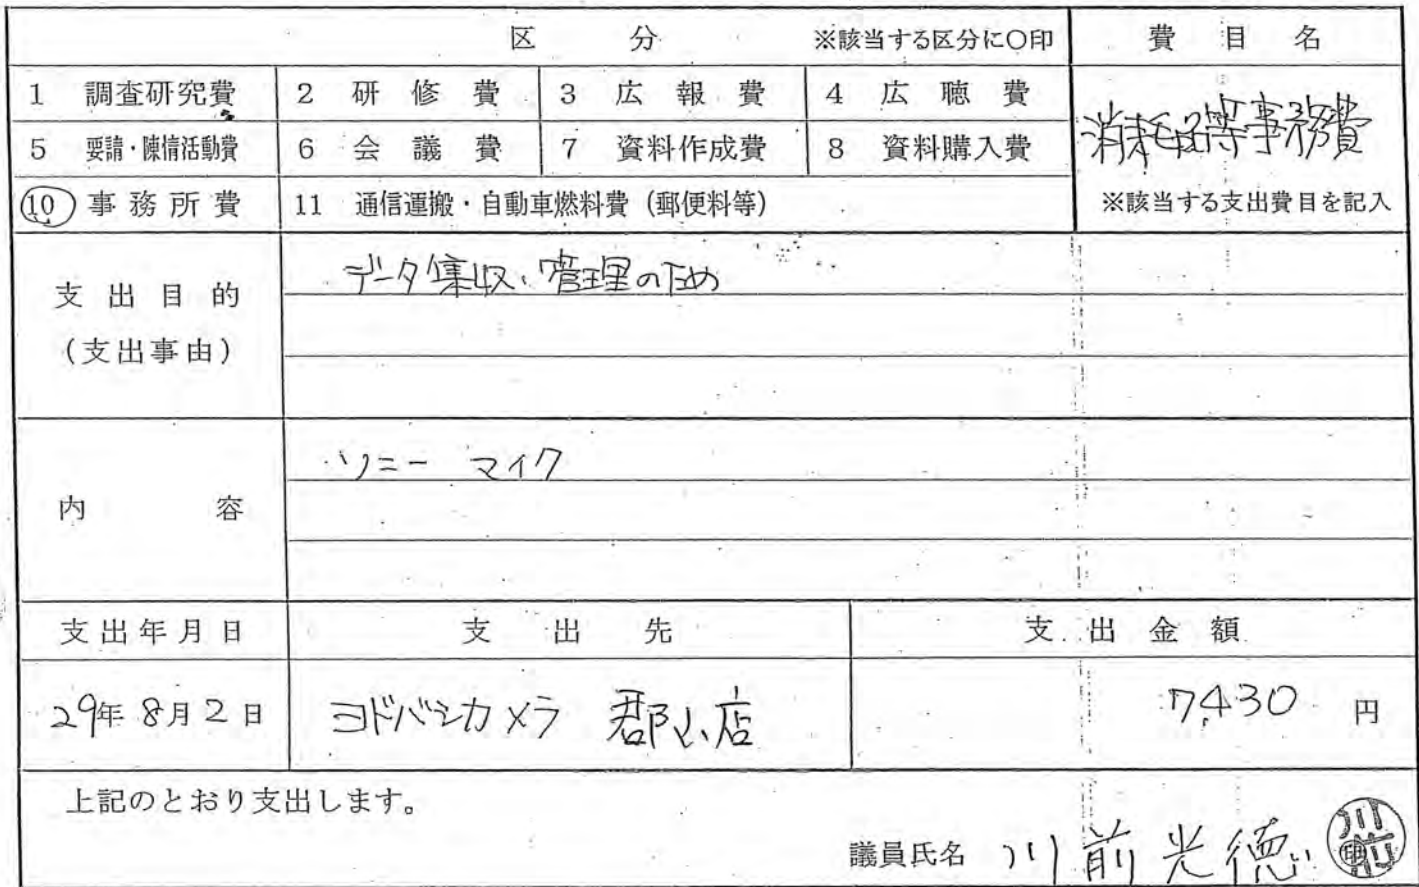 区 分 ※該当する区分に〇印 費目名
1 調査研究費 2 研修費 3 広報費 4 広聴費 消耗品等事務費
5 要請・陳情活動費 6 会議費 7 資料作成費 8 資料購入費
10 事務所費 11 通信運搬・自動車燃料費（郵便料等） ※該当する支出費目を記入
支出目的
（支出事由）
データ集収、管理のため
内容
ソニー マイク
支出年月日 支出先 支出金額
29年8月2日 ヨドバシカメラ 郡山店 7,430 円
上記のとおり支出します。
議員氏名 川前光徳 川前印